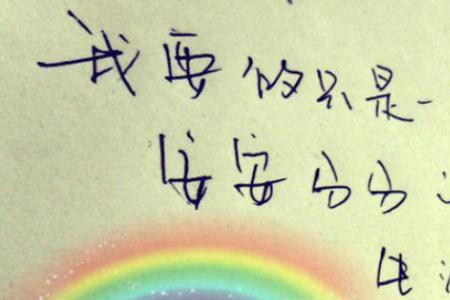 我要的只是
安安分分